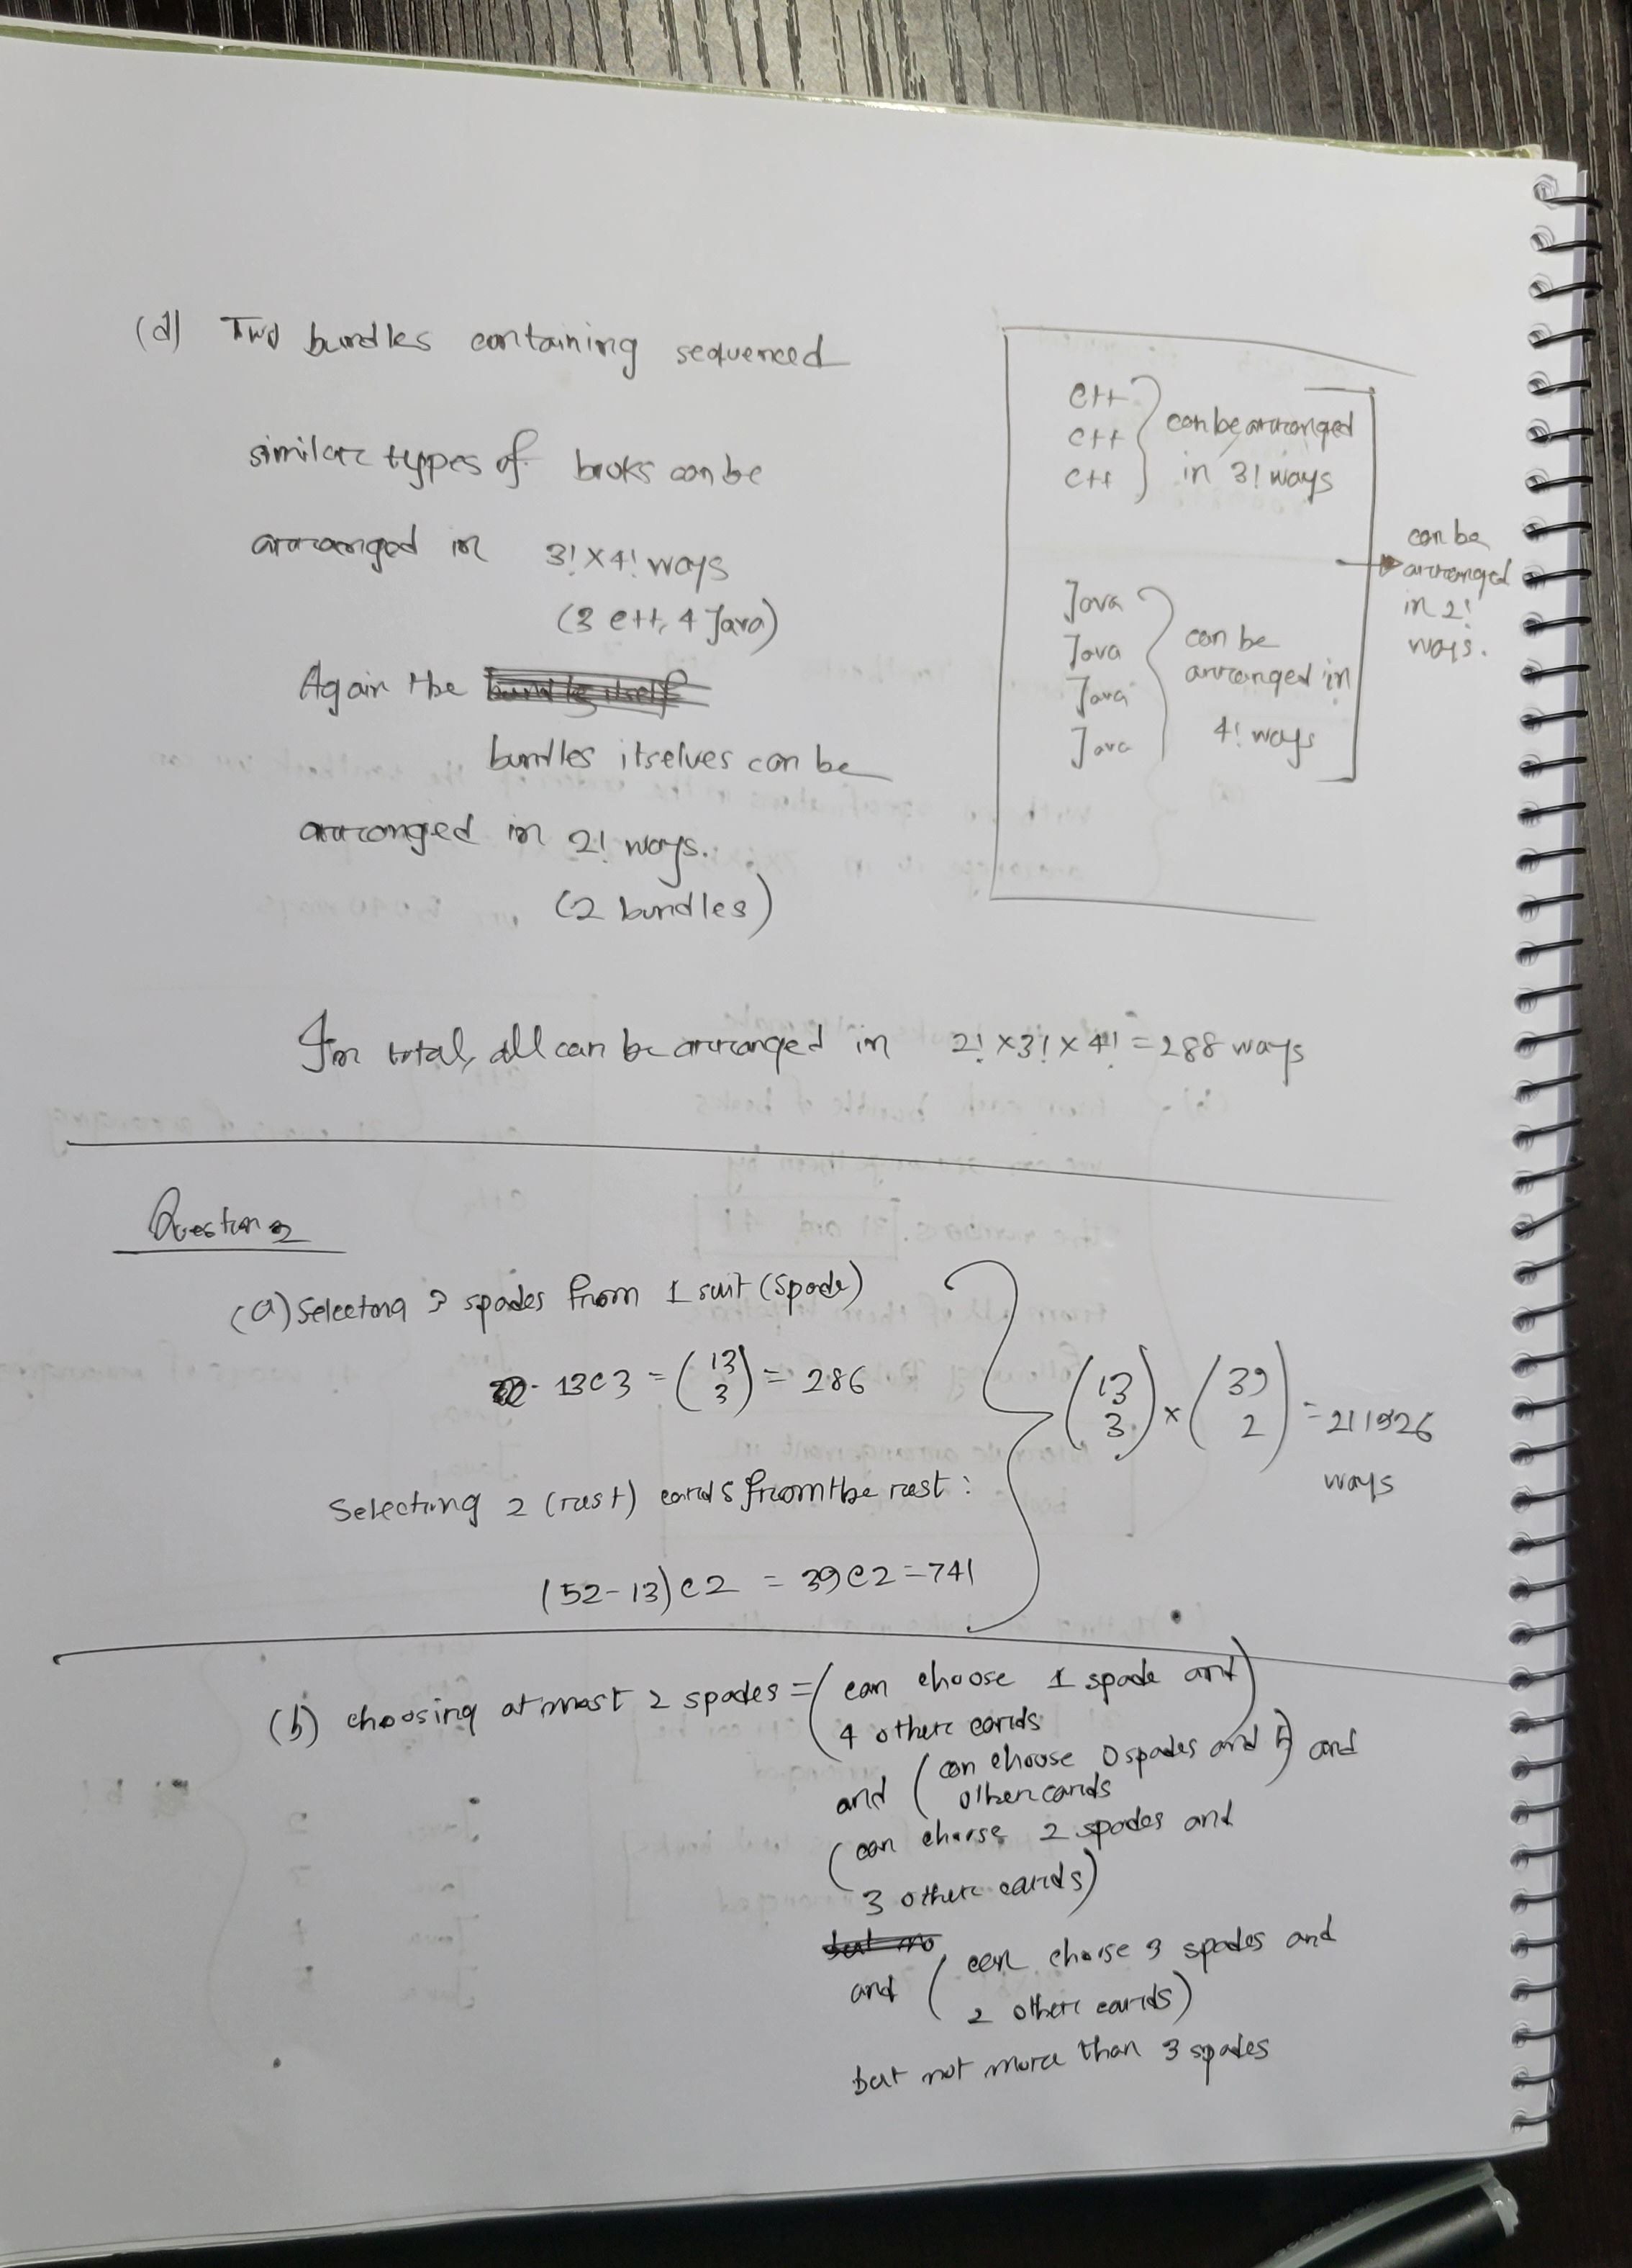 (d) Two bundles containing sequenced
similar types of books can be
arranged in 3! x 4! ways
(3 c++, 4 Java)
Again the bundle itself
bundles itselves can be
arranged in 2! ways.
(2 bundles)
C++
C++
C++
can be arranged
in 3! ways
Java
Java
Java
Java
can be
arranged in
4! ways
can be
arranged
in 2!
ways.
In total, all can be arranged in 2! x 3! x 4! = 288 ways
Question 2
(a) Selecting 3 spades from 1 suit (Spade)
13C3 = (13 3) = 286
Selecting 2 (rest) cards from the rest :
(52-13)C2 = 39C2 = 741
(13 3) x (39 2) = 211926
ways
(b) choosing at most 2 spades = (can choose 1 spade and
4 other cards)
and (can choose 0 spades and 5
other cards) and
(can choose 2 spades and
3 other cards)
but no
and (can choose 3 spades and
2 other cards)
but not more than 3 spades